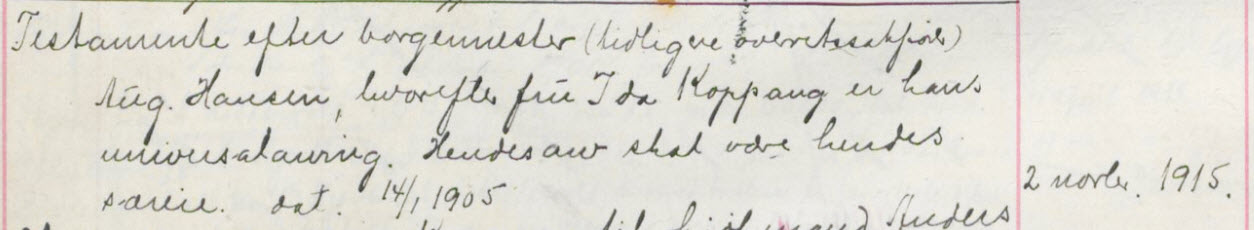 Testamente efter borgermester (tidligere overretssakfører)
Aug. Hansen, hvorefter frü Ida Koppang er hans
universalarving. Hendes arv skal være hendes
særeie. dat. 14/1 1905
2 novbr. 1915.
til mand Anders